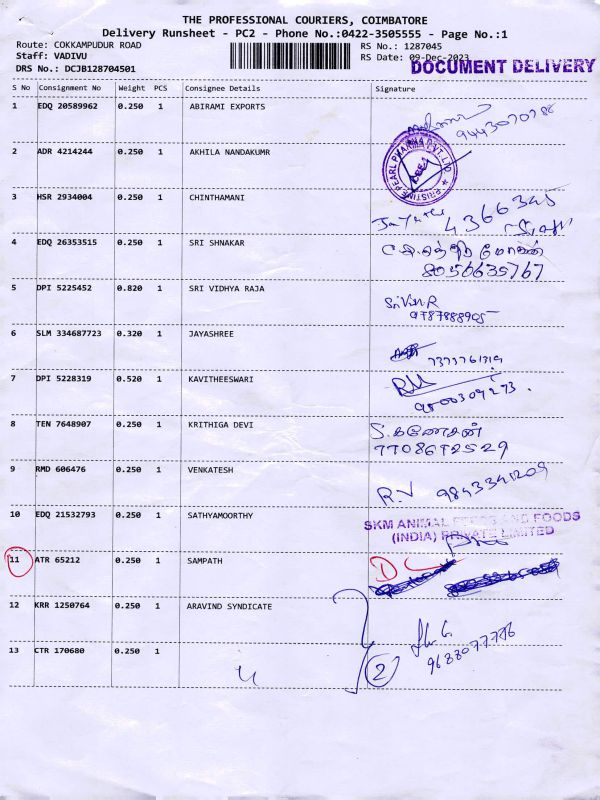 THE PROFESSIONAL COURIERS, COIMBATORE
Delivery Runsheet - PC2 - Phone No.:0422-3505555 - Page No.:1
Route: COKKAMPUDUR ROAD
Staff: VADIVU
DRS No.: DCJB128704501
RS No.: 1287045
RS Date: 09-Dec-2023
DOCUMENT DELIVERY
S No Consignment No Weight PCS Consignee Details Signature
1 EDQ 20589962 0.250 1 ABIRAMI EXPORTS
2 ADR 4214244 0.250 1 AKHILA NANDAKUMR
PRISTINE PEARL PHARMA PVT. LTD
3 HSR 2934004 0.250 1 CHINTHAMANI
4366345
4 EDQ 26353515 0.250 1 SRI SHNAKAR
மோகன்
8056635767
5 DPI 5225452 0.820 1 SRI VIDHYA RAJA
6 SLM 334687723 0.320 1 JAYASHREE
7 DPI 5228319 0.520 1 KAVITHEESWARI
8 TEN 7648907 0.250 1 KRITHIGA DEVI
S.கணேசன்
7708612529
9 RMD 606476 0.250 1 VENKATESH
R.V 9843341209
10 EDQ 21532793 0.250 1 SATHYAMOORTHY
SKM ANIMAL FEEDS AND FOODS
(INDIA) PRIVATE LIMITED
11 ATR 65212 0.250 1 SAMPATH
DC
12 KRR 1250764 0.250 1 ARAVIND SYNDICATE
13 CTR 170680 0.250 1
2
9688077776